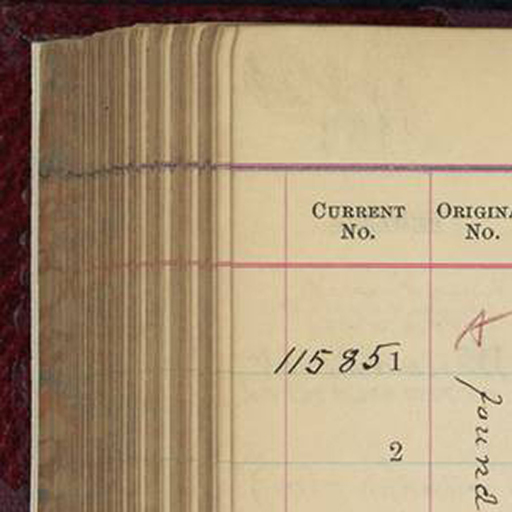 CURRENT No.
ORIGINA No.
A
115851
found
2